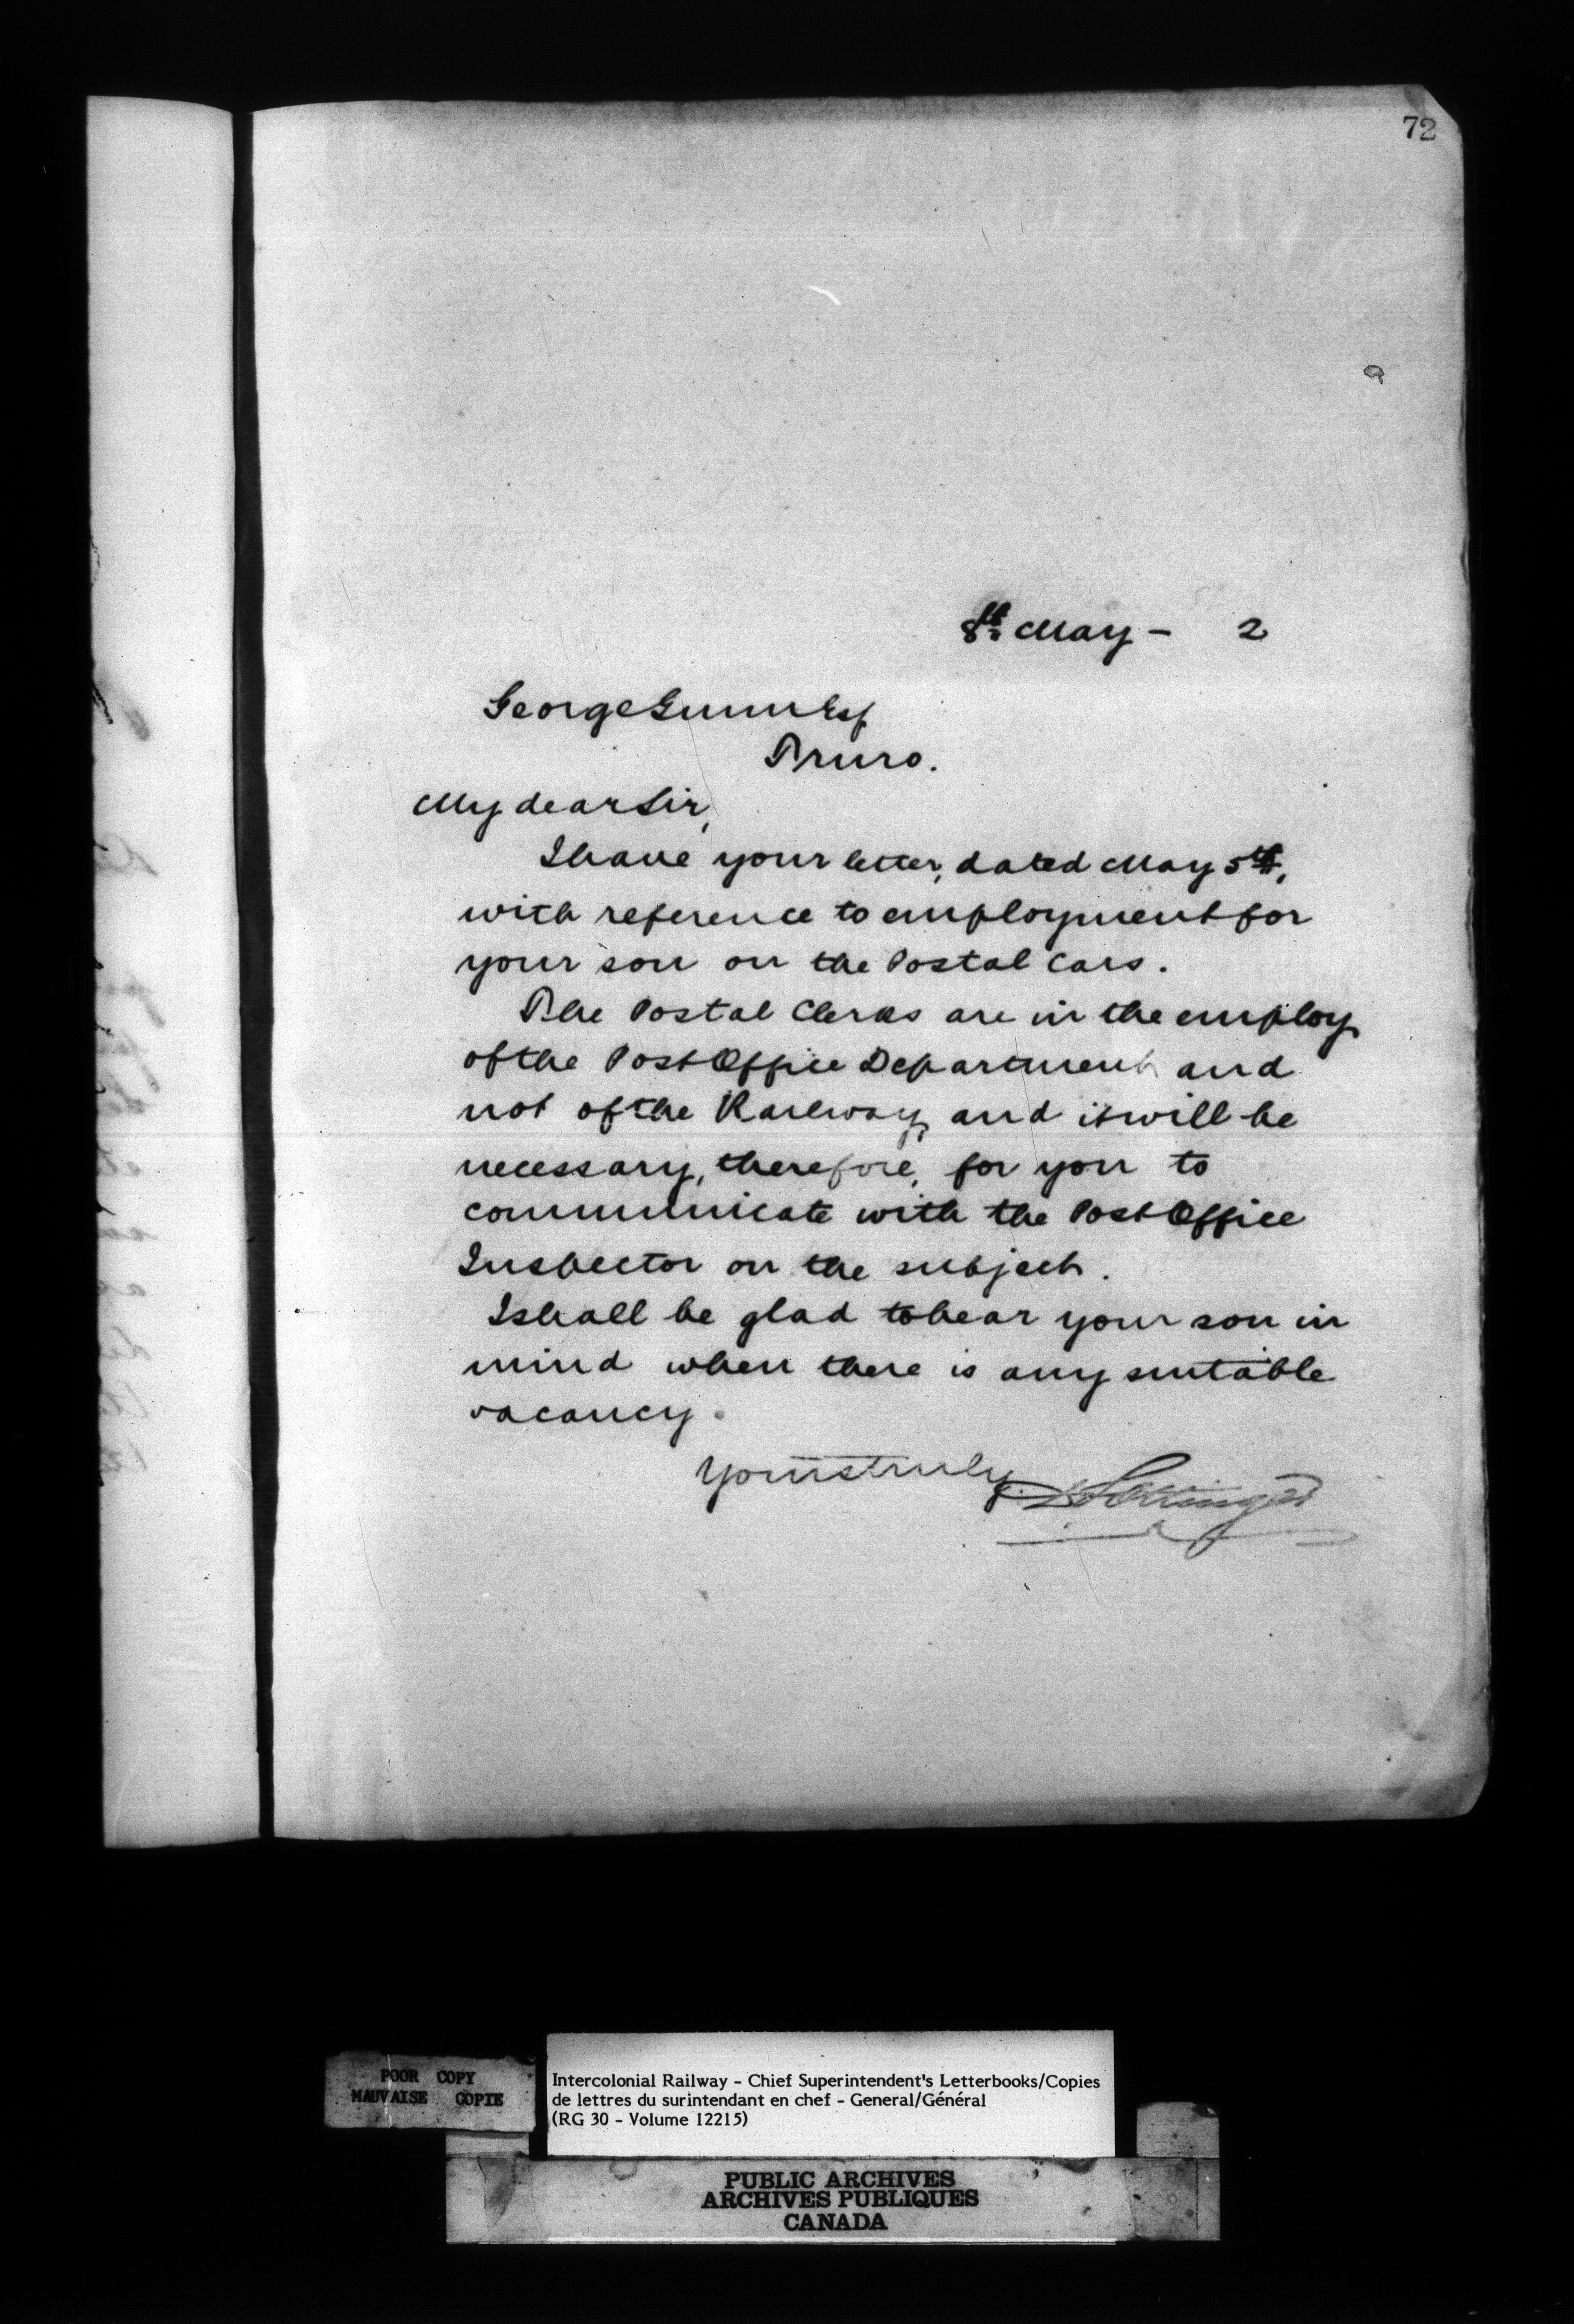 72
8th May - 2
George Gunn Esq
Truro.
My dear Sir,
I have your letter, dated May 5th,
with reference to employment for
your son on the Postal Cars.
The Postal Clerks are in the employ
of the Post Office Department and
not of the Railway, and it will be
necessary, therefore, for you to
communicate with the Post Office
Inspector on the subject.
I shall be glad to bear your son in
mind when there is any suitable
vacancy.
Yours truly
D Pottinger
POOR COPY
MAUVAISE COPIE
Intercolonial Railway - Chief Superintendent's Letterbooks/Copies
de lettres du surintendant en chef - General/Général
(RG 30 - Volume 12215)
PUBLIC ARCHIVES
ARCHIVES PUBLIQUES
CANADA